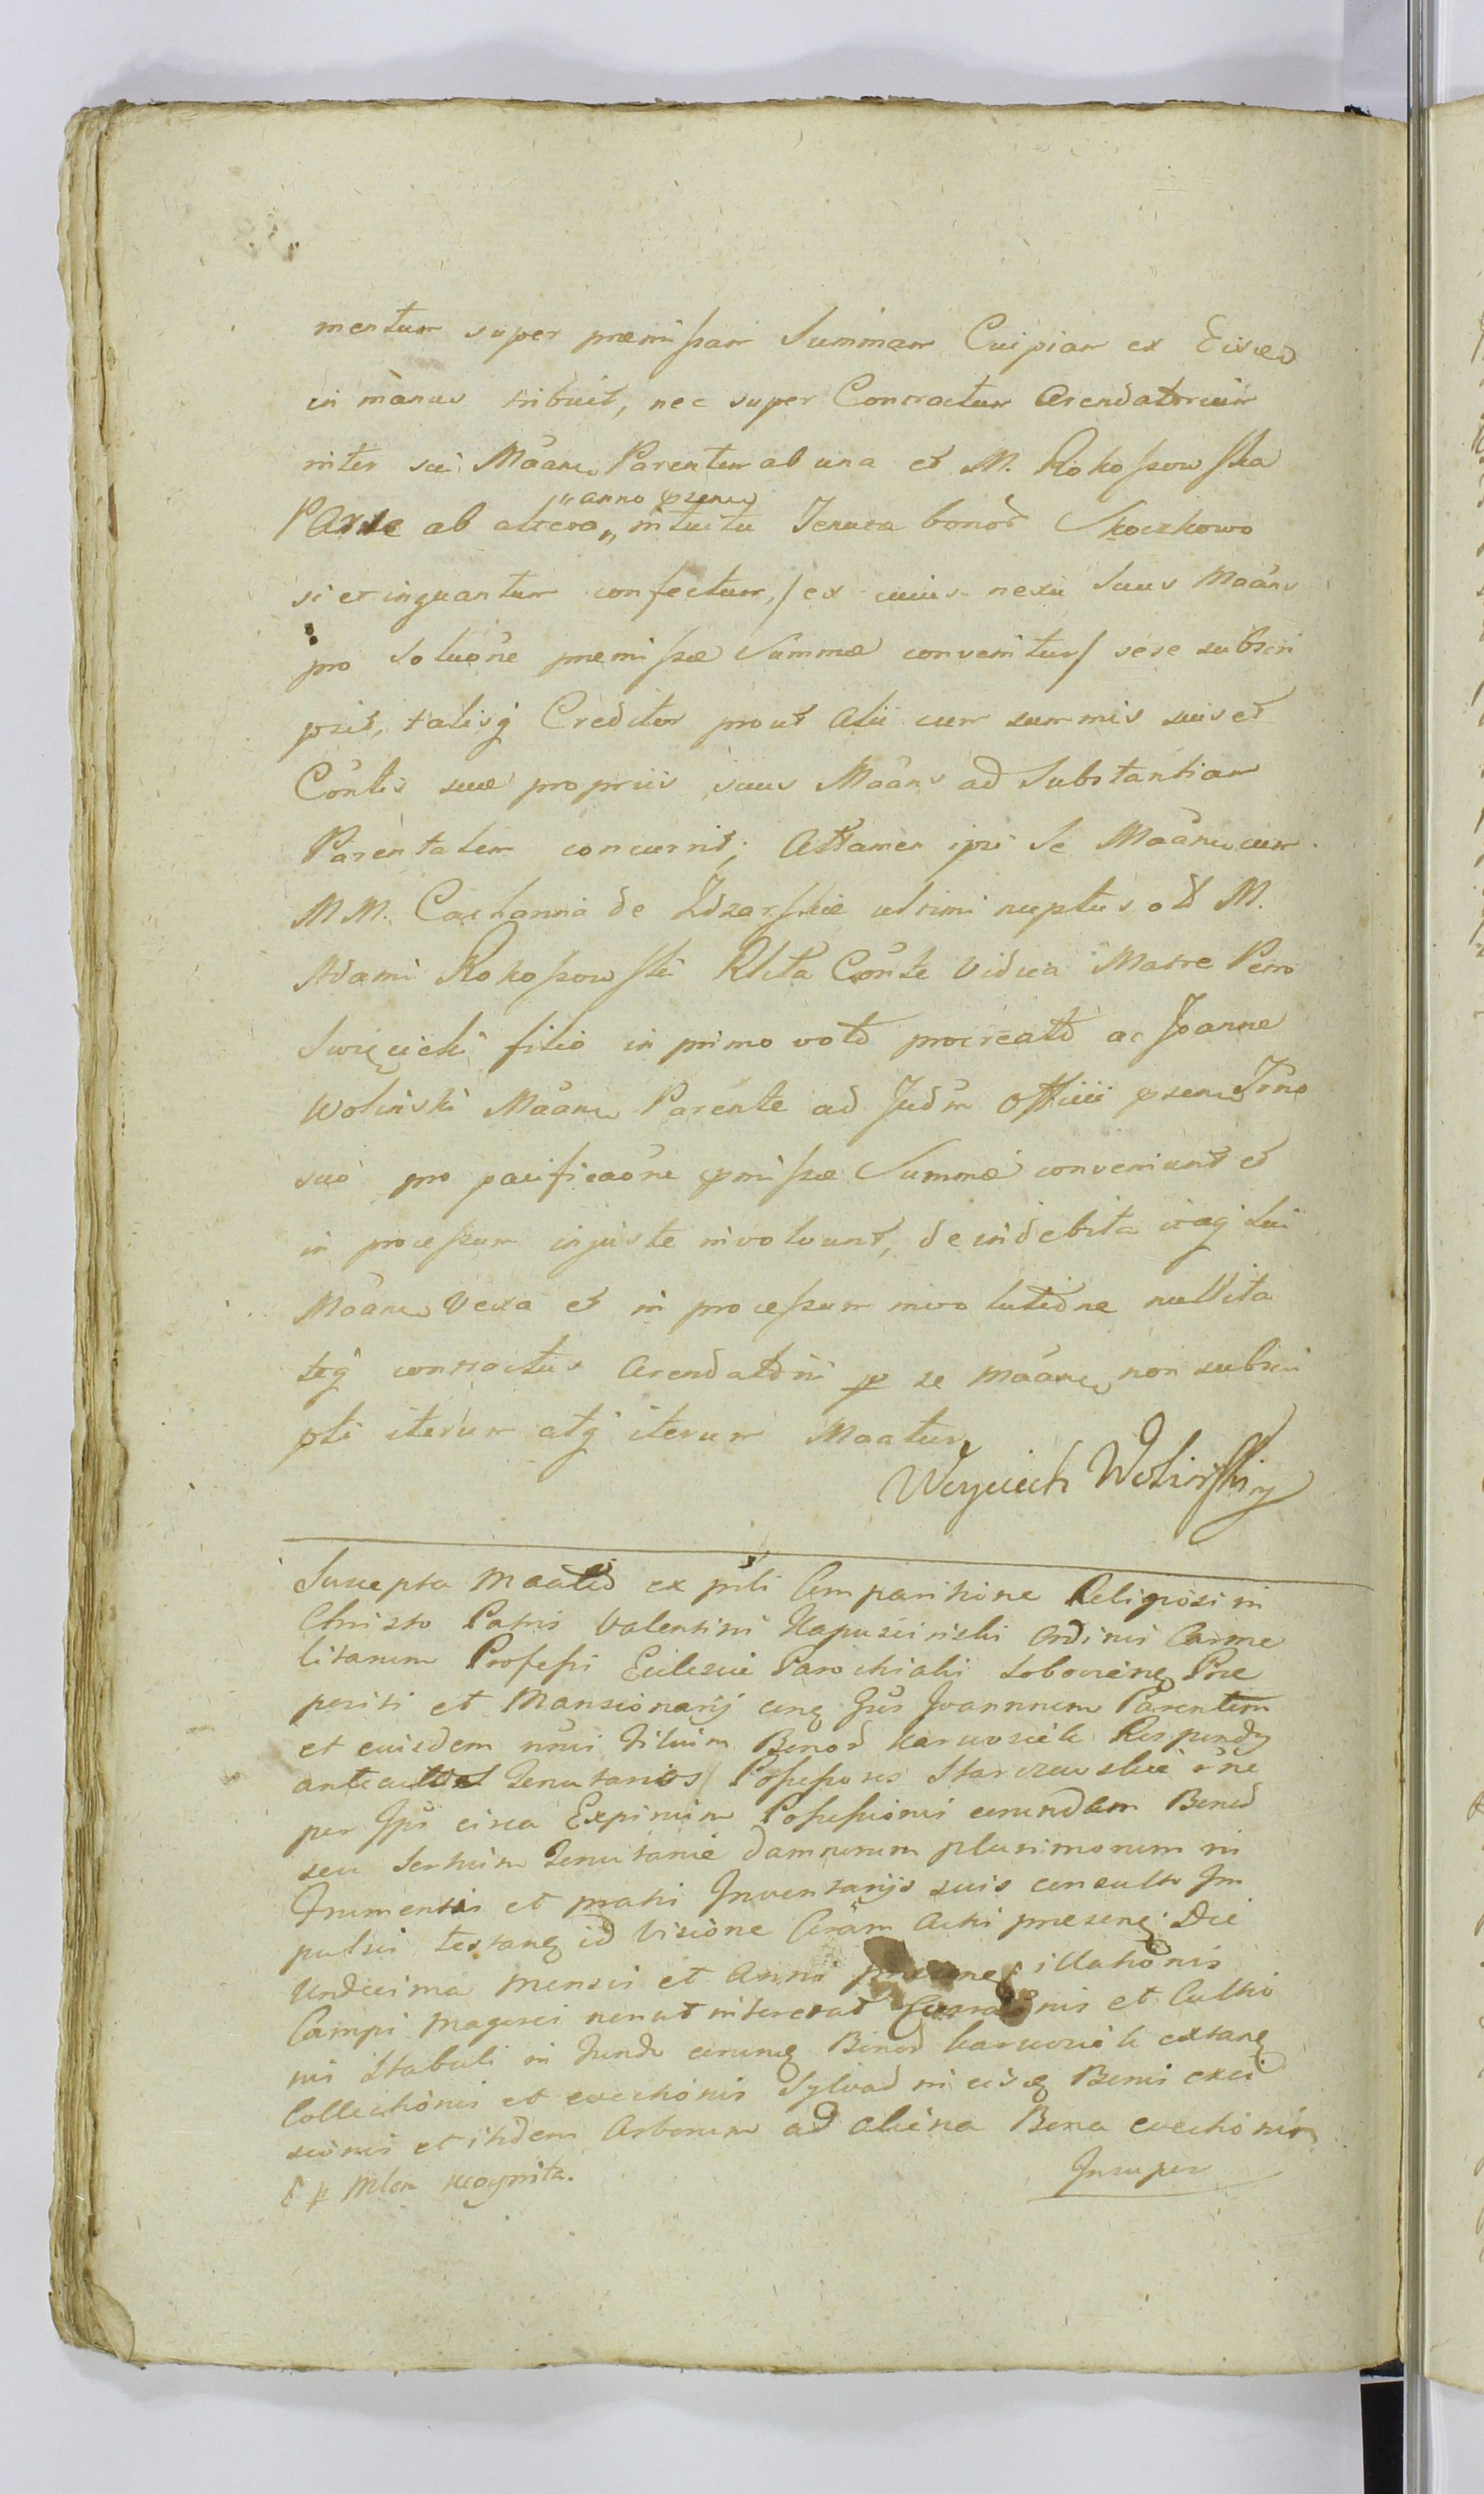 mentum super præmissam Summam Cuipiam ex Eisd
in manus tribuit, nec super Contractum Arendatorium
inter sui Maāns Parentem ab una et M. Rokossowska
" anno præns
Parte ab altera " intuitu Tenutæ bonor Skoczkowo
si et inquantum confectum, / ex cuius nexu Suus Maāns
pro Soluōne præmissæ Summæ convenitur / sese subscri
psit, talisq Creditor prout Alii cum summis suis et
Cōntis suæ propriis suus Maāns ad Substantiam
Parentalem concurrit; Attamen ipsi Se Maāns cum
M M. Caetanna de Zdzarskie ultimi nuptus olt M.
Adami Rokossowski Rlita Cōnte Vidua Matre Petro
Swięcicki filio in primo voto procreato ac Joanne
Wolinski Maāns Parente ad Judm Officii præns Trno
suo pro pacificaōne pmissæ Summæ conveniunt et
in processum injuste involvunt, de indebita itaq Sui
Maāns Vexa et in processum involutiōne nullita
teq contractus Arendatorii p se maāns non subscri
pti iterum atq iterum Maatur
Woyciech Woliński mp
Suscepta Maatio ex prli Comparitione Religiosi in
Christo Patris Valentini Kapuscinski Ordinis Carme
litarum Professi Ecclesiæ Parochialis Præ
positi et Mansionarij Joannnem Parentem
et eiusdem Filium Bonor Karwosieki
Tenutarios Possessores Starczewskie
per Ips circa Expirium Possessionis eorundem Bonor
seu Tertium Tenutarie damnorum plurimorum in
Frumentis et pratis Inventarijs suis consulto Im
pulsu testanq id Visione Coram Acti præsenq Die
Undecima Mensis et Anni illationis
Campi et Culti
nis Stabuli in Fundo eorunq Bonor Karwosieki extanq
Collectionis et evectionis Sylvar in eisq Bonis exci
sionis et itidem Arborum ad aliena Bona evectionis
p Mlem recognita.
Insuper